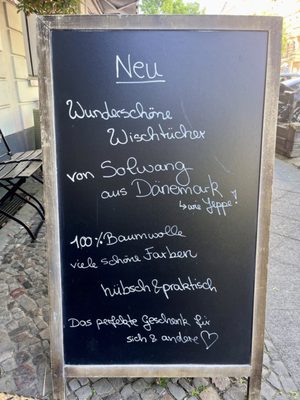 Neu
Wunderschöne
Wischtücher
von Solwang
aus Dänemark
↳ wie Jeppe!
100% Baumwolle
viele schöne Farben
hübsch & praktisch
Das perfekte Geschenk für
sich & andere ♡